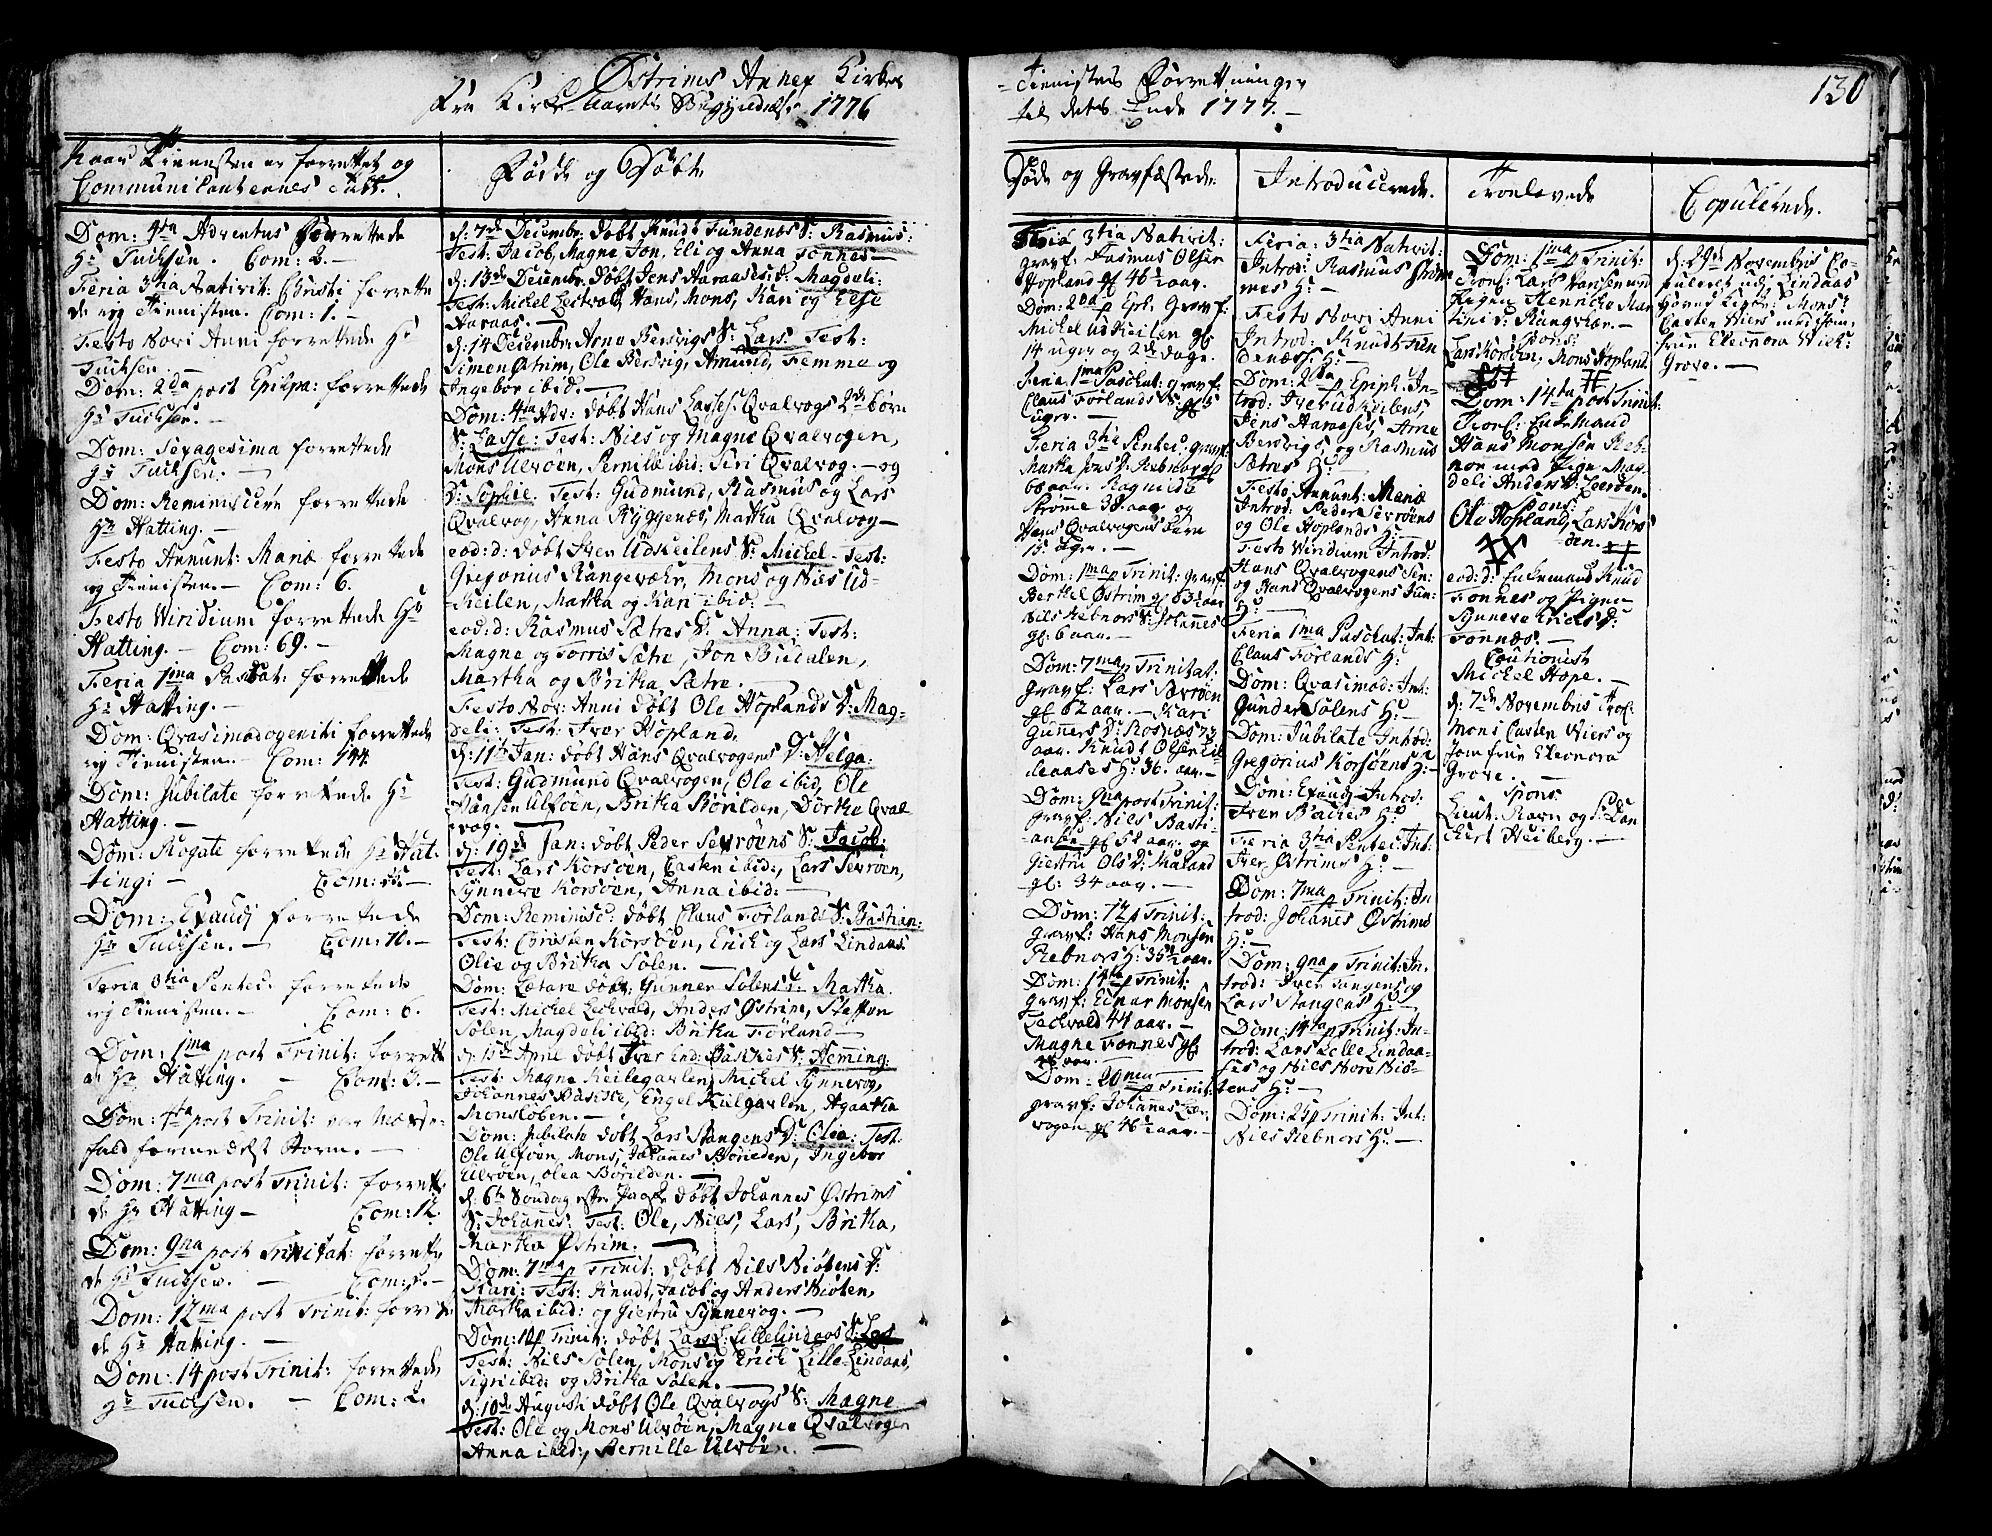 Østrims Annex Kirkes
Fra Kirke Aarets Begyndelse 1776
Naar Tienesten er forrettet og
Communicanternes Tall.
Fødde og Døbte
Dom: 4ta Adventus Forrettede
Hr Tuchsen. Com: 3.
Feria 3tia Nativit: Christi forrette
de ieg Tienisten. Com: 1.
Festo Novi Anni forrettede Hr
Tuchsen.
Dom: 2da post Epiph: forrettede
Hr Tuchsen.
Dom: Sexagesima forrettede
Hr Tuchsen.
Dom: Reminiscere forrettede
Hr Hatting.
Festo Annunt: Mariæ forrettede
ieg Tienisten. Com: 6.
Festo Viridium forrettede Hr
Hatting. Com: 69.
Feria 1ma Paschat: forrettede
Hr Hatting.
Dom: Qvasimodogeniti forrettede
ieg Tienisten. Com: 144
Dom: Jubilate forrettede Hr
Hatting.
Dom: Rogate forrettede Hr Hat-
ting:
Dom: Exaudj forrettede
Hr Tuchsen. Com: 10.
Feria 3tia Pentec: forrettede
ieg Tienisten. Com: 6.
Dom: 1ma post Trinit: forrett
de Hr Hatting. Com: 3.
Dom: 4ta post Trinit: var Messe-
fald formedelst Storm.
Dom: 7ma post Trinit: forrette
de Hr Hatting Com: 12.
Dom: 9na post Trinitat: forrette
de Hr Tuchsen.
Dom: 12ma post Trinit: forrette
de Hr Hatting.
Dom: 14 post Trinit: forrettede
Hr Tuchsen. Com: 2.
d: 7de Decembr: døbt Knudt Fundenæs S: Rasmus:
Test: Jacob, Magne, Jon, Eli og Anna Fonnæs
d: 13de Decembr: døbt Jens Aaraases D: Magdeli:
Test: Michel Lechvold, Hans, Mons, Kari og Else
Aaraas.
d: 14 Decembr: Arne Bersvigs S: Lars. Test:
Simen Østrim, Ole Bersvig, Amund, Femme og
Ingebor ibid.
Dom: 4ta Adv: døbt Hans Lasses: Qvalvogs 2de børn
S: Lasse: Test: Niels og Magne Qvalvogen,
Mons Ulvøen, Pernille ibid: Siri Qvalvog. og
D: Sophie. Test: Gudmund, Rasmus og Lars
Qvalvog, Anna Ryggenæs, Martha Qvalvog
eod: d: døbt Iver Udkeilens S: Michel. Test:
Gregorius Rangevæhr, Mons og Niels Ud-
Keilen, Martha og Kari ibid:
eod: d: Rasmus Sætres D: Anna: Test:
Magne og Torris Sætre, Jon Budalen,
Martha og Britha Sætre.
Festo Nov: Anni døbt Ole Hoplands D: Mag-
deli: Test: Iver Hopland.
d: 11te Jan: døbt Hans Qvalvogens D: Helga:
Test: Gudmund Qvalvogen, Ole ibid, Ole
Hansen Ulføen, Britha Børilden, Dorthe Qval
vog.
d: 19de Jan: døbt Peder Sevrøens S: Jacob:
Test: Lars Korsøen, Casten ibid:, Lars Sevrøen,
Synneve Korsøen, Anna ibid:
Dom: Reminisc: døbt Claus Førlands S: Bastian:
Test: Christen Korsøen, Erich og Lars Lindaas
Olie og Britha Solen.
Dom: Lætare døbt Gunner Solens D: Martha.
Test: Michel Lechvald, Anders Østrim, Steffen
Solen, Magdeli ibid: Britha Førland
d: 13de April døbt Iver S: Hemming:
Test: Magne Keilegarlen, Michel Synnevog,
Johannes Bache, Engel Keilgarlen, Agaatha
Monsløben.
Dom: Jubilate døbt Lars Stangens D: Olie: Test:
Ole Ulføen, Mons, Johannes Børieden, Ingebor
Ulvøen, Olea Børilden.
d: 6te Søndag efter Paaske døbt Johannes Østrims
S: Johannes: Test: Ole, Niels, Lars, Britha,
Martha Østrim.
Dom: 7ma p Trinit: døbt Niels Niøtens D:
Kari: Test: Knudt, Jacob og Anders Niøten,
Martha ibid: og Giertru Synnevog.
Dom: 10 p Trinit: døbt Lars L: Lillelindaas S: Lars
Test: Niels Solen, Mons og Erich Lille Lindaas,
Sigri ibid: og Britha Solen.
d: 10de Augusti døbt Ole Qvalvogs S: Magne
Test: Ole og Mons Ulvøen, Magne Qvalvogen
Anna ibid:, Pernille Ulvøen.
Tienistes Forrettninger
til dets Ende 1777.
130
Døde og Gravfæstede.
Introducerede.
Trolovede
Copulerede.
Feria 3tia Nativit:
gravf: Rasmus Olsen
Hopland gl: 46 1/2 aar.
Dom: 2da p Eph: Gravf:
Michel Udkeilen gl:
14 uger og 2de dage.
Feria 1ma Paschat: gravf:
Claus Førlands S: gl: 5
uger.
Feria 3tia Pentec: gravf:
Martha Jens D: Rebnor gl
68 aar. Ragnilde
Strømme 38 aar og
Hans Qvalvogens barn
15 uger.
Dom: 1ma p Trinit: gravf:
Berthel Østrim gl: 63 1/2 aar
Niels Rebnors S: Johannes
gl: 6 aar.
Dom: 7ma p Trinitat:
gravf: Lars Sævrøen
gl: 62 aar. Kari
Gunners D: Rosnæs 73
aar. Knudt Olsen Lil-
leaases H: 36. aar.
Dom: 9na post Trinit:
gravf: Niels Basti-
ansen gl: 58 aar. og
Giertru Ols D: Maland
gl: 34 aar.
Dom: 14 p Trinit:
gravf: Hans Monsen
Rebnors H: 35 1/2 aar.
Dom: 14ta p Trinit:
gravf: Einar Monsen
Lechvold 44 aar.
Magne Fonnes gl
aar.
Dom: 20ma p Trinit:
gravf: Johannes Lær-
vogen gl 46 1/2 aar.
Feria: 3tia Nativit:
Introd: Rasmus Strøm-
mes H:
Festo Novi Anni
Introd: Knudt Fun
denæs: H:
Dom: 2da p Epiph: In-
trod: Iver Udkeilens,
Jens Aaraases, Arne
Bersvigs, og Rasmus
Sætres H:
Festo Annunt: Mariæ
Introd: Peder Sevrøens
og Ole Hoplands H:
Festo Viridium Introd:
Hans Qvalvogens Sen:
og Hans Qvalvogens Jun:
H:
Feria 1ma Paschat: Int:
Claus Førlands H:
Dom: Qvasimod: Int:
Gunder Solens H:
Dom: Jubilate Introd:
Gregorius Korsøens H:
Dom: Exaudj Introd:
Iver Baches H:
Feria 3tia Pentec: Int:
Iver Østrims H:
Dom: 7ma p Trinit: In
trod: Johannes Østrims
H:
Dom: 9na p Trinit: In-
trod: Iver Tangens og
Lars Stangens H:
Dom: 14ta p Trinit: In-
trod: Lars Lille Lindaa-
ses og Niels Nore Niø-
tens H:
Dom: 25 p Trinit: Int:
Niels Rebnors H:
Dom: 1ma p Trinit:
Trol: Lars Hansen med
Pigen Henriche Mar
tini D: Rangvær.
Spons:
Lars Korsøen, Mons Hopland.
Dom: 14ta post Trinit:
Trol: Enkemand
Hans Monsen Reb-
nor med Pige: Mag
deli Anders D: Leerøen.
Spons:
Ole Hopland, Lars Kors
øen.
eod: d: Enkemand Knud
Fonnes og Pigen
Synneve Nield D:
Fonnæs.
Cautionist
Michel Hope.
d: 7de Novembris Trol:
Mons: Casten Wiers og
Jomfrue Eleonora
Grove.
Spons:
Lieut. Ravn og S: Dan
chert Heiberg.
d: 29de Novembris Co-
puleret udj Lindaas
Hoved Kirke: Mons:
Casten Wiers med Jom-
frue Eleonora Wich:
Grove.